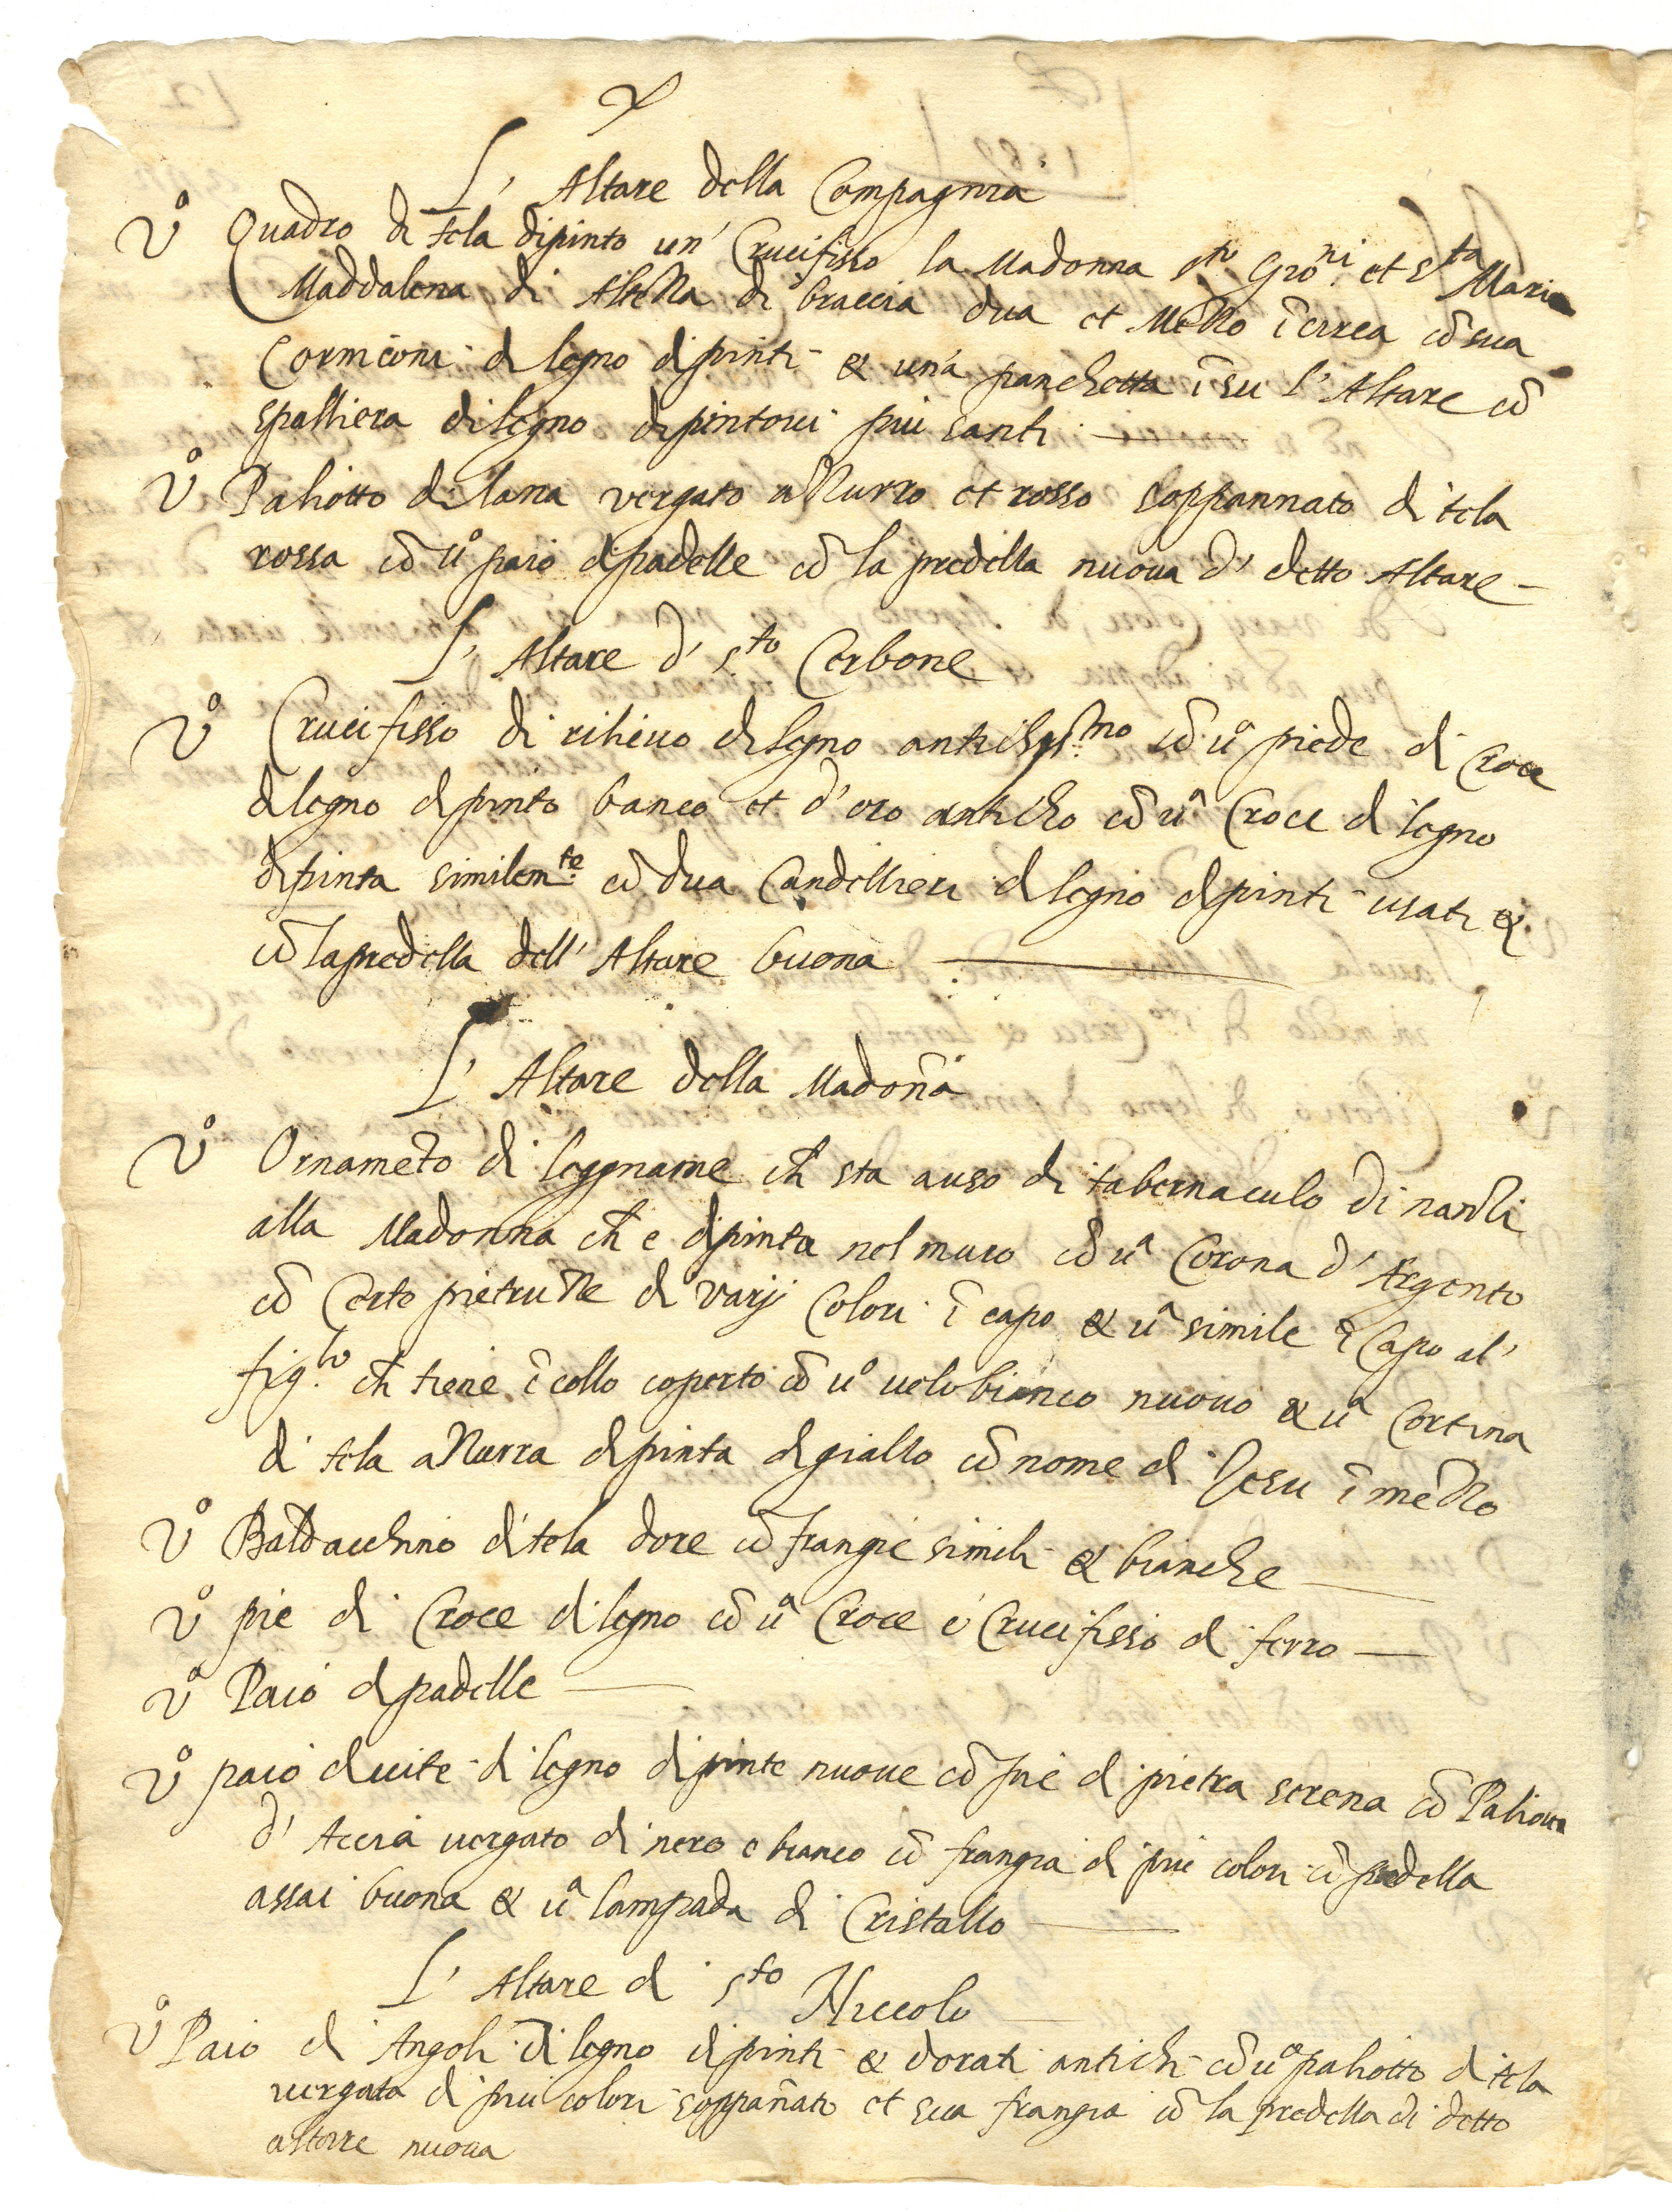 L' Altare della Compagnia
Vº Quadro di tela dipinto un' Crucifisso la Madonna sto Gioni. et Sta Maria
Maddalena di Altezza di braccia dua et Mezzo ĩ circa cõ sua
Cornicioni di legno dipinti & una panchetta ĩ su l' Altare cõ
spalliera di legno dipintoui piu santi
Vº Paliotto di lana vergato azzurro et rosso soppannato di tela
rossa cõ uº paio di padelle cõ la predella nuoua d' detto Altare
L' Altare d' Sto Cerbone
Vº Crucifisso di rilieuo di legno antichissmo cõ uº piede di Croce
di legno dipinto banco et d'oro anticho cõ uª Croce di legno
dipinta similemte cõ dua Candellieri di legno dipinti usati &
cõ la predella dell' Altare buona
L' Altare della Madoña
Vº Ornamẽto di leggname ch̃ sta auso di tabernaculo dinanzi
alla Madonna ch̃ e dipinta nel muro cõ uª Corona d' Argento
cõ Certe pietruzze di varij Colori ĩ capo & uª simile ĩ Capo al'
figlo. ch̃ tiene ĩ collo coperto cõ uº uelo bianco nuouo & uª Cortina
di tela azzurra dipinta di giallo cõ nome di Jesu ĩ mezzo
Vº Baldacchino di tela dore cõ frangie simili & bianche
Vº pie di Croce di legno cõ uª Croce e Crucifisso di ferro
Vº Paio di padelle
Vº paio di uite di legno dipinte nuoue cõ pie di pietra serena cõ Paliotto
d' Accia uergato di nero e bianco cõ frangia di piu colori cõ predella
assai buona & uª lampada di Cristallo
L' Altare di Sto Niccolo
Vº Paio di Angoli di legno dipinti & dorati antichi cõ uº paliotto di tela
uergata di piu colori soppañato et sua frangia cõ la predella di detto
altare nuoua